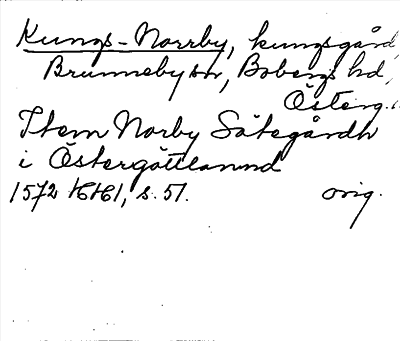 Kungs-Norrby, kungsgård,
Brunneby sn, Bobergs hd,
Österg.
Item Norby Sätegårdh
i Östergöttlannd
1572 HH1, s. 51. orig.